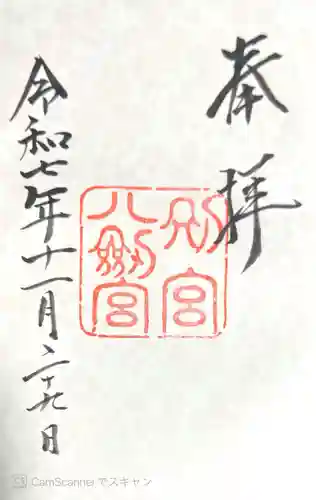 奉拝
別宮
八劔宮
令和七年十一月二十九日
CamScanner でスキャン